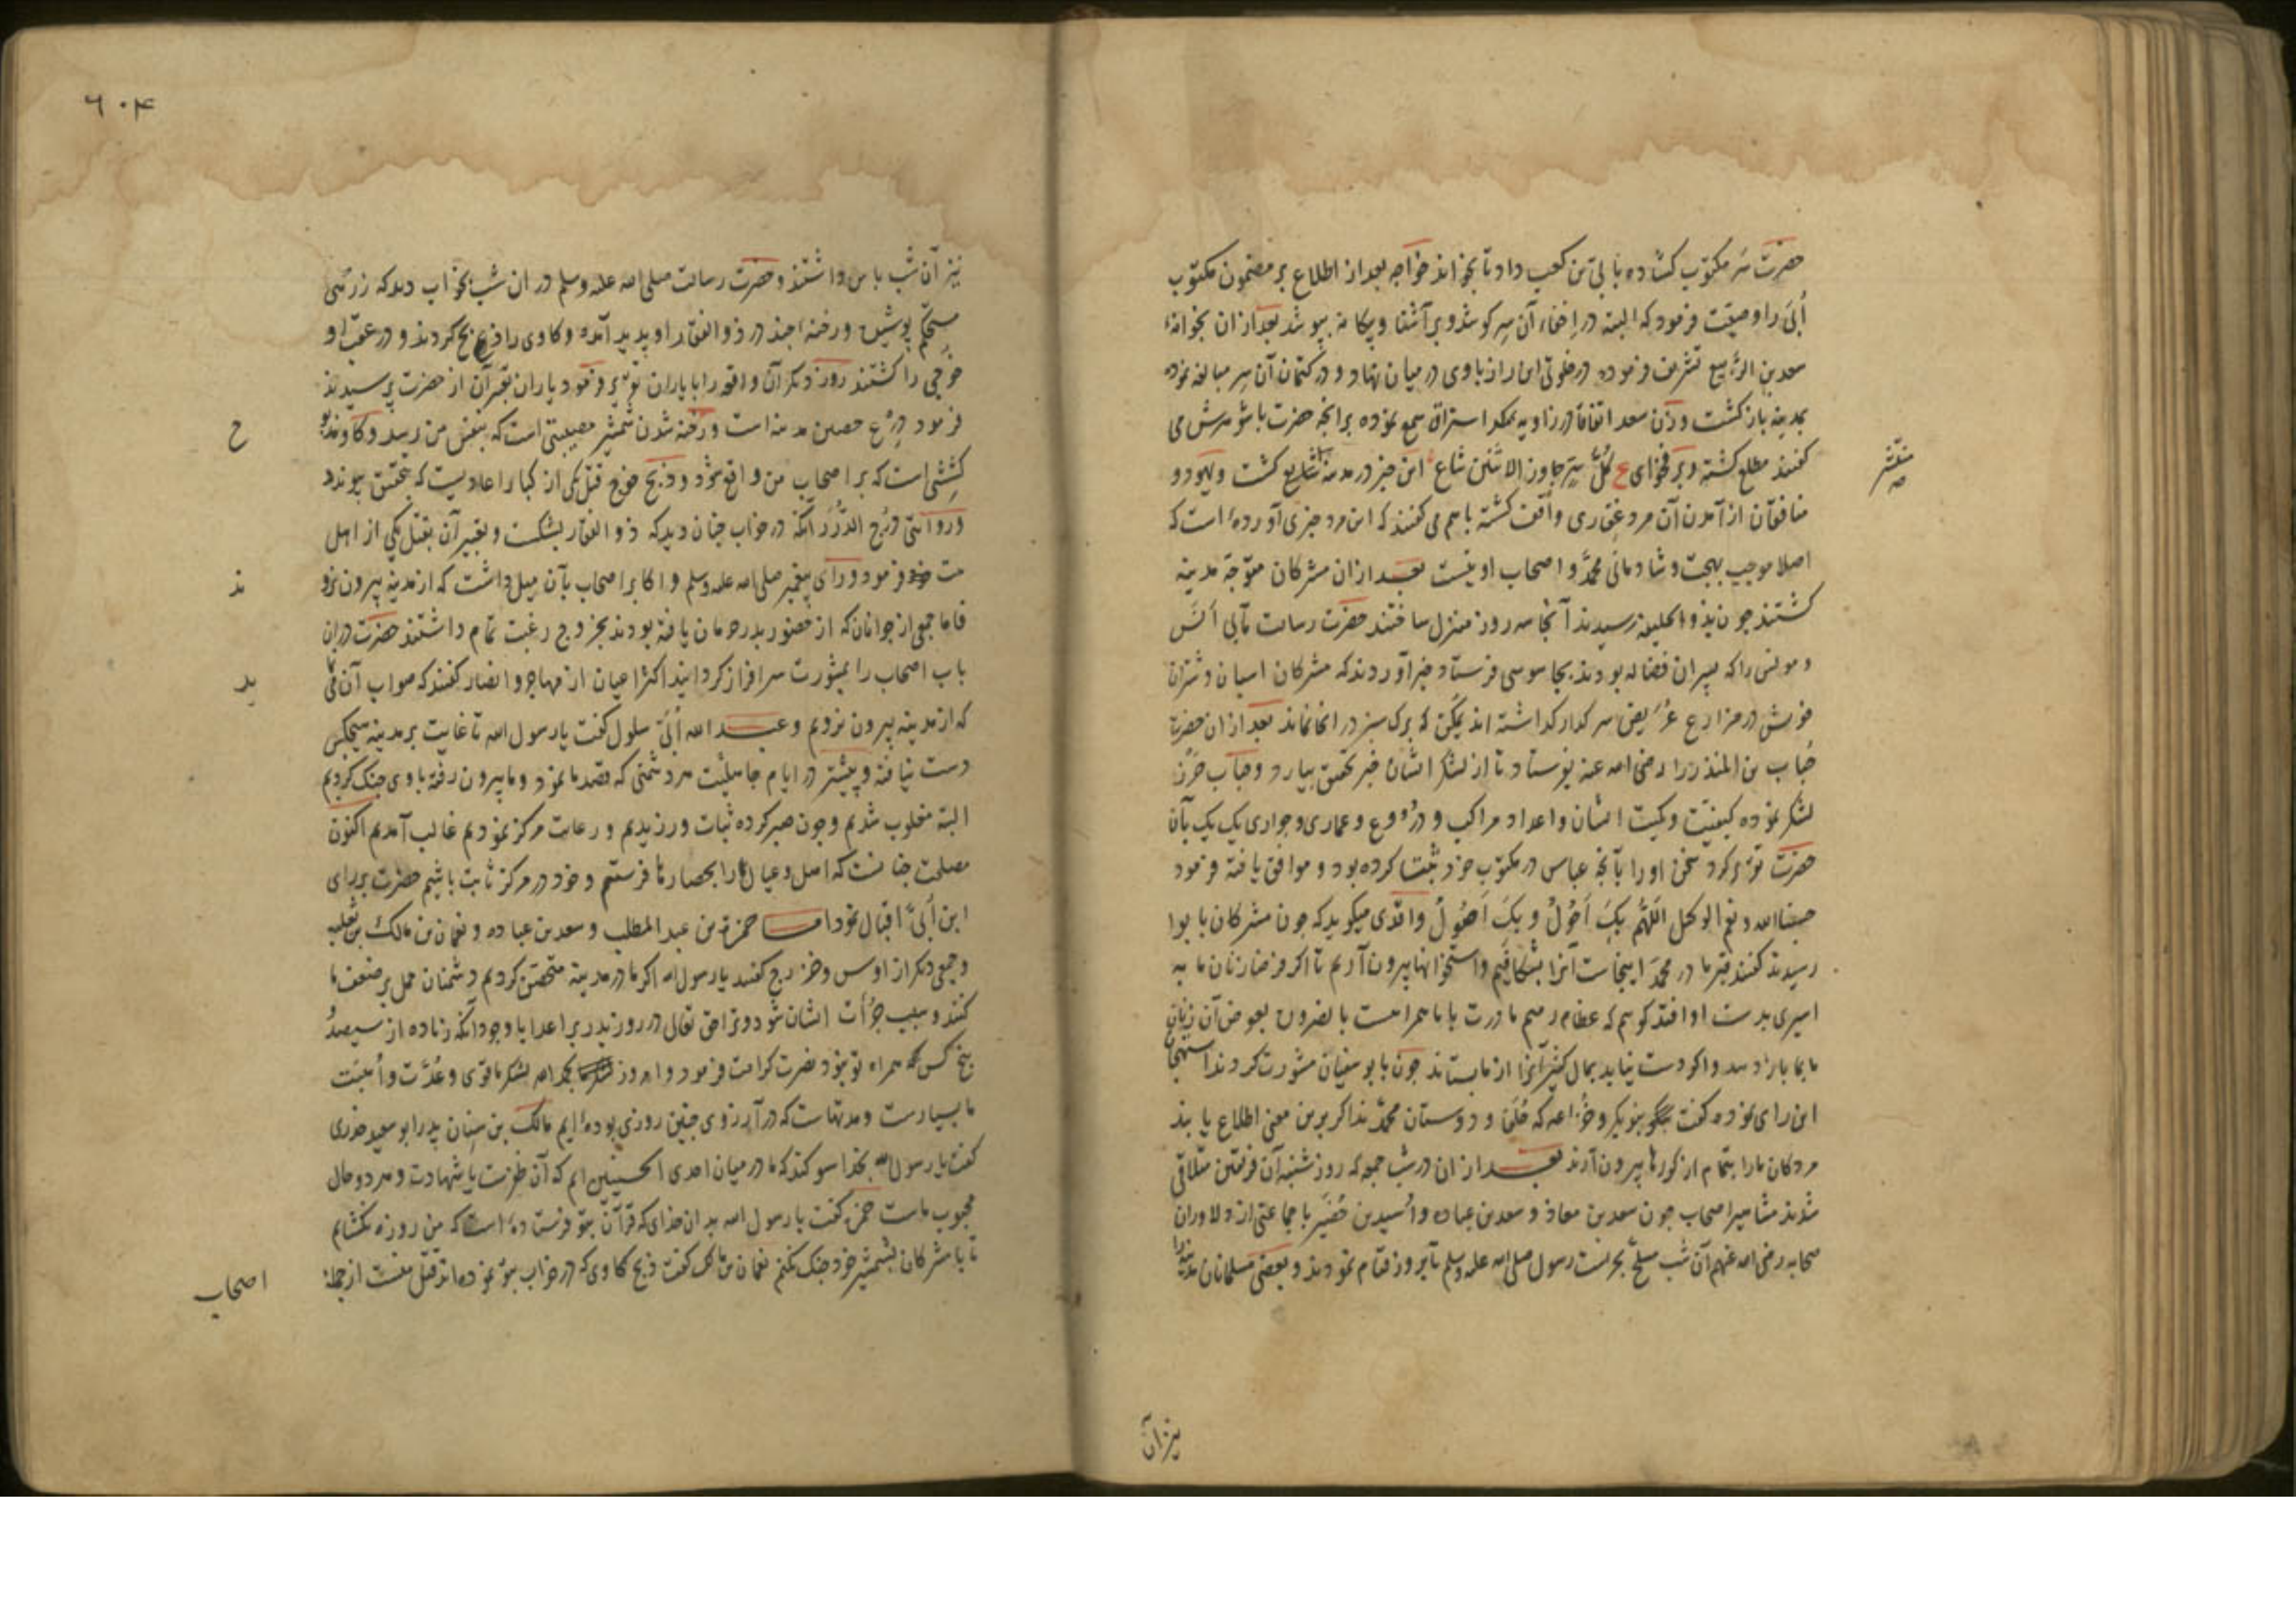 حضرت سر مکتوب کشاده بابی بن کعب داد تا بخواند خواجه بعد از اطلاع بر مضمون مکتوب
اُبَی را وصیّت فرمود که البته در اخفاء آن سِر کوشد و بر آشنا و بیکانه بپوشد بعد از ان بخوانهٔ
سعد بن الرّبیع تشریف فرموده در خلوتی این راز باوی در میان نهاد و در کتمان آن سر مبالغه نموده
بمدینه باز کشت و زن سعد اتفاقاً در زاویه استراق سمع نموده بر انچه حضرت باشوهرش می
کفتند مطلع کشته و بر فحوای ع کُلُّ سِرٍّ جاوز الاثنین شاع این خبر در مدینه شایع کشت و یهود و
منتشر
منافقان از آمدن آن مرد غفاری واقف کشته باهم می کفتند که این مرد خبری آورده است که
اصلا موجب بهجت و شادمانی محمّد و اصحاب او نیست بعد از ان مشرکان متوجّه مدینه
کشتند چون بذو الحلیفه رسیدند آنجا سه روز منزل ساختند حضرت رسالت مآبی اَنَس
و مونس را که پسران فضاله بودند بجاسوسی فرستاد خبر آوردند که مشرکان اسبان و شتران
خویش در مزارع عُرَیض سر کذاشته اند یمکن که برک سبز در انجا نماند بعد از ان حضرت
حُباب بن المنذر را رضی الله عنه بفرستاد تا از لشکر ایشان خبر تحقیق بیارد و حباب حَرز
لشکر نموده کیفیّت و کمیّت ایشان و اعداد مراکب و دُروع و عماری و جواری یک یک بآن
حضرت تقریر کرد سخن او را بآنچه عباس در مکتوب خود ثبت کرده بود موافق یافته فرمود
حسبنا الله و نعم الوکیل اللّهُمَّ بِکَ اَحُولُ و بِکَ اَصُولُ واقدی میکوید که چون مشرکان با بوا
رسیدند کفتند قبر مادر محمّد اینجاست آنرا بشکافیم و استخوانها بیرون آریم تا اکر فرضا زنان ما به
اسیری بدست او افتد کوییم که عظام رمیم مادرت با ما همراهست بالضروره بعوض آن زنان
ما بما باز دهد و اکر دست نیابد بمال کثیر آنرا از ما بستاند چون با بو سفیان مشورت کردند استهجان
این رای نموده کفت بنو بکر و خزاعه که حُلَفا و دوستان محمّدند اکر برین معنی اطلاع یابند
مردکان مارا بتمام از کورها بیرون آرند بعد از ان در شب جمعه که روز شنبه آن فریقین متلاقی
شدند مشاهیر اصحاب چون سعد بن معاذ و سعد بن عباده و اُسید بن حُضَیر با جماعتی از دلاوران
صحابه رضی الله عنهم آن شب مسلّح بحراست رسول صلی الله علیه وسلم تا بروز قیام نمودند و بعضی مسلمانان مدینه را
نیز آن
٦٠۴
نیز آن شب پاس داشتند و حضرت رسالت صلی الله علیه وسلم در ان شب بخواب دید که زرهی
مستحکم پوشیده و رخنهٔ چند در ذو الفقار او پدید آمده و کاوی را ذبح کردند و در عقب او
قوچی را کشتند روز دیکر آن واقعه را با یاران تقریر فرمود یاران تعبیر آن از حضرت پرسیدند
فرمود دِرع حصین مدینه است و رخنه شدن شمشیر مصیبتی است که بنفس من رسد و کاو
ح
کشتنی است که بر اصحاب من واقع شود و ذبح قوچ قتل یکی از کبار اعادیست که بتحقیق پیوندد
و روایتی دُرج الدُّرَر آنکه در خواب چنان دید که ذو الفقار بشکست و تعبیر آن بقتل یکی از اهل
بیت خود فرمود و رای پیغمبر صلی الله علیه وسلم و اکابر اصحاب بآن میل داشت که از مدینه بیرون نرو
ند
فاما جمعی از جوانان که از حضور بدر حرمان یافته بودند بخروج رغبت تمام داشتند حضرت در ان
باب اصحاب را بمشورت سرافراز کردانید اکثر اعیان از مهاجر و انصار کفتند که صواب آن می نما
ید
که از مدینه بیرون نرویم و عبد الله اُبَیّ سلول کفت یا رسول الله تا غایت بر مدینه هیچکس
دست نیافته و پیشتر در ایام جاهلیّت هر دشمنی که قصد ما نمود و ما بیرون رفته باوی جنک کردیم
البته مغلوب شدیم و چون صبر کرده ثبات ورزیدیم و رعایت مرکز نمودیم غالب آمدیم اکنون
مصلحت چنانست که اهل و عیال را بحصارها فرستیم و خود در مرکز ثابت باشیم حضرت بر رای
ابن اُبَیّ اقبال نمود اما حمزة بن عبد المطلب و سعد بن عباده و نعمان بن مالک بن ثعلبه
و جمعی دیکر از اوس و خزرج کفتند یا رسول الله اکر ما در مدینه متحصّن کردیم دشمنان حمل بر ضعف ما
کنند و سبب جرأت ایشان شود و ترا حق تعالی در روز بدر بر اعدا با وجود آنکه زیاده از سیصد
پنج کس همراه تو نبود نصرت کرامت فرمود و امروز بحمد الله لشکر ما قوی و عُدَّت و اُهبَت
ما بسیارست و مدتهاست که در آرزوی چنین روزی بوده ایم مالک بن سِنان پدر ابو سعید خدری
کفت یا رسول الله بخدا سوکند که ما در میان احدی الحسنیین ایم که آن ظفرست یا شهادت و هر دو حال
محبوب ماست حمزه کفت یا رسول الله بدان خدای که قرآن بتو فرستاده است که من روزه نکشایم
تا با مشرکان بشمشیر خود جنک نکنم نعمان بن مالک کفت ذبح کاوی که در خواب بتو نموده اند قتل منست از جملهٔ
اصحاب